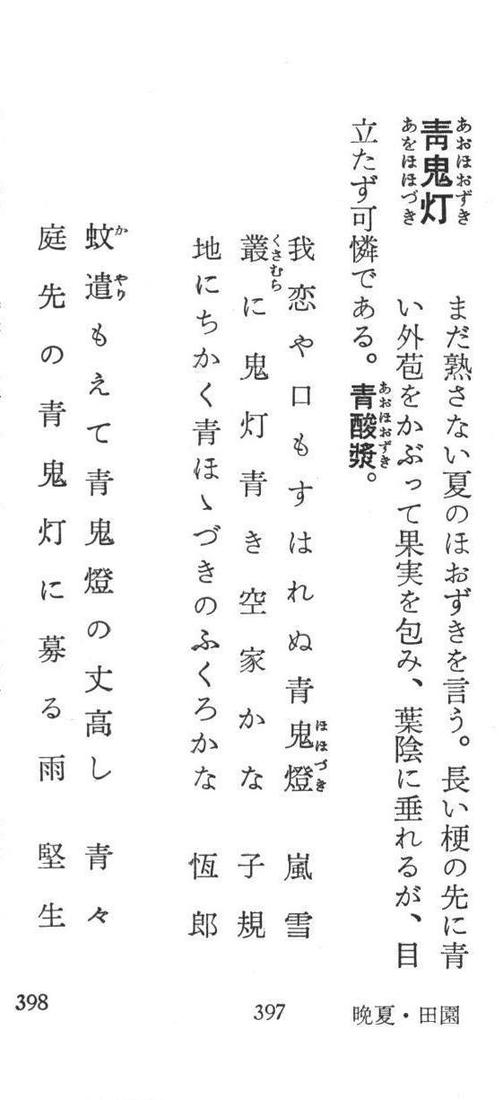 青鬼灯
あおほおずき
あをほほづき
まだ熟さない夏のほおずきを言う。長い梗の先に青
い外苞をかぶって果実を包み、葉陰に垂れるが、目
立たず可憐である。青酸漿。
あおほおずき
我恋や口もすはれぬ青鬼燈 嵐雪
ほほづき
叢に鬼灯青き空家かな 子規
くさむら
地にちかく青ほゝづきのふくろかな 恆郎
蚊遣もえて青鬼燈の丈高し 青々
か やり
庭先の青鬼灯に募る雨 堅生
晩夏・田園
397
398